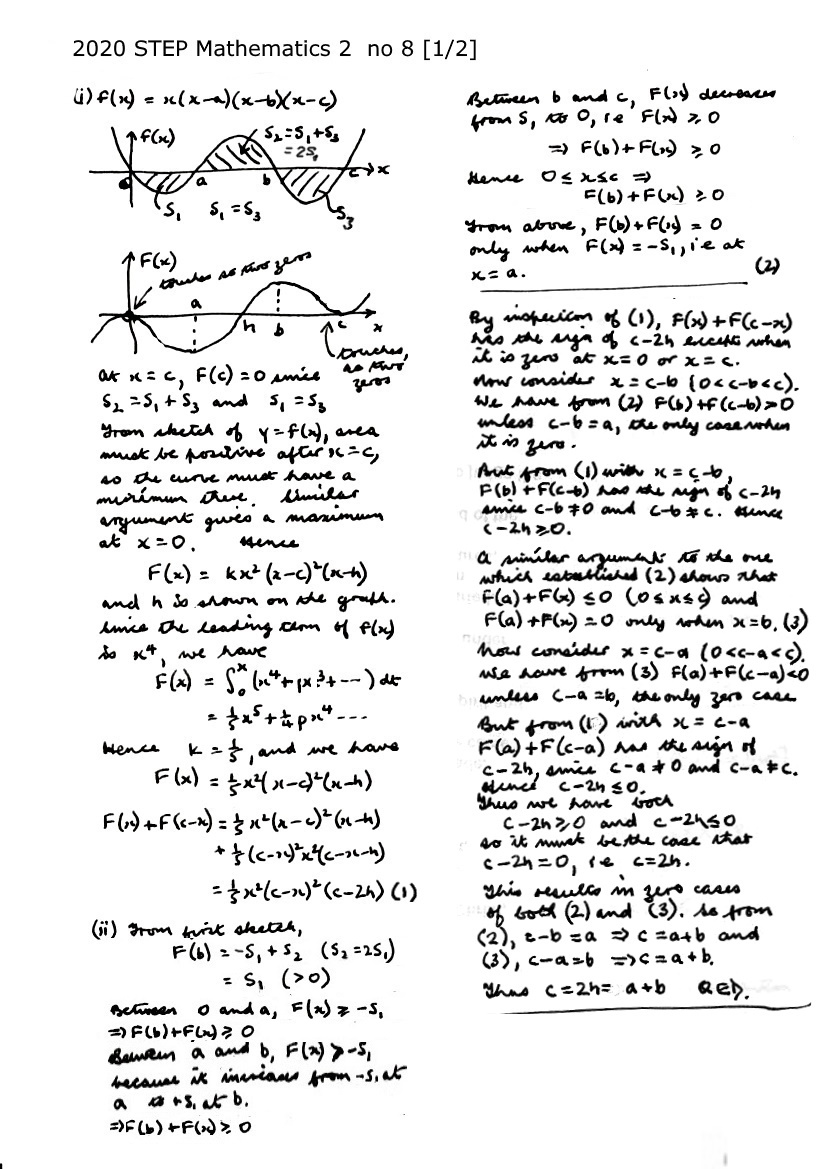 2020 STEP Mathematics 2 no 8 [1/2]
(i) f(x) = x(x-a)(x-b)(x-c)
f(x)
S₂=S₁+S₃
= 2S₁
a
b
c
x
S₁
S₁ = S₃
S₃
F(x)
touches as two zeros
a
h
b
c
x
touches,
as two
zeros
At x = c, F(c) = 0 since
S₂ = S₁ + S₃ and S₁ = S₃
From sketch of y = f(x), area
must be positive after x = c,
so the curve must have a
minimum there. Similar
argument gives a maximum
at x = 0. Hence
F(x) = kx²(x-c)²(x-h)
and h is shown on the graph.
Since the leading term of f(x)
is x⁴, we have
F(x) = ∫₀ˣ (x⁴ + px³ + --) dt
= ⅕x⁵ + ¼px⁴ ---
Hence k = ⅕, and we have
F(x) = ⅕x²(x-c)²(x-h)
F(x)+F(c-x) = ⅕x²(x-c)²(x-h)
+ ⅕(c-x)²x²(c-x-h)
= ⅕x²(c-x)²(c-2h) (1)
(ii) From first sketch,
F(b) = -S₁ + S₂ (S₂ = 2S₁)
= S₁ (>0)
Between 0 and a, F(x) ≥ -S₁
⇒ F(b)+F(x) ≥ 0
Between a and b, F(x) > -S₁
because it increases from -S₁ at
a to +S₁ at b.
⇒ F(b)+F(x) ≥ 0
Between b and c, F(x) decreases
from S₁ to 0, ie F(x) ≥ 0
⇒ F(b)+F(x) ≥ 0
Hence 0 ≤ x ≤ c ⇒
F(b)+F(x) ≥ 0
From above, F(b)+F(x) = 0
only when F(x) = -S₁, ie at
x = a. (2)
By inspection of (1), F(x)+F(c-x)
has the sign of c-2h except when
it is zero at x=0 or x=c.
Now consider x = c-b (0<c-b<c).
We have from (2) F(b)+F(c-b)>0
unless c-b = a, the only case when
it is zero.
But from (1) with x = c-b,
F(b)+F(c-b) has the sign of c-2h
since c-b ≠ 0 and c-b ≠ c. Hence
c-2h ≥ 0.
A similar argument to the one
which established (2) shows that
F(a)+F(x) ≤ 0 (0 ≤ x ≤ c) and
F(a)+F(x) = 0 only when x=b. (3)
Now consider x = c-a (0<c-a<c).
We have from (3) F(a)+F(c-a)<0
unless c-a = b, the only zero case
But from (1) with x = c-a
F(a)+F(c-a) has the sign of
c-2h, since c-a ≠ 0 and c-a ≠ c.
Hence c-2h ≤ 0.
Thus we have both
c-2h ≥ 0 and c-2h ≤ 0
so it must be the case that
c-2h = 0, ie c=2h.
This results in zero cases
of both (2) and (3). So from
(2), c-b = a ⇒ c = a+b and
(3), c-a = b ⇒ c = a+b.
Thus c = 2h = a+b QED.